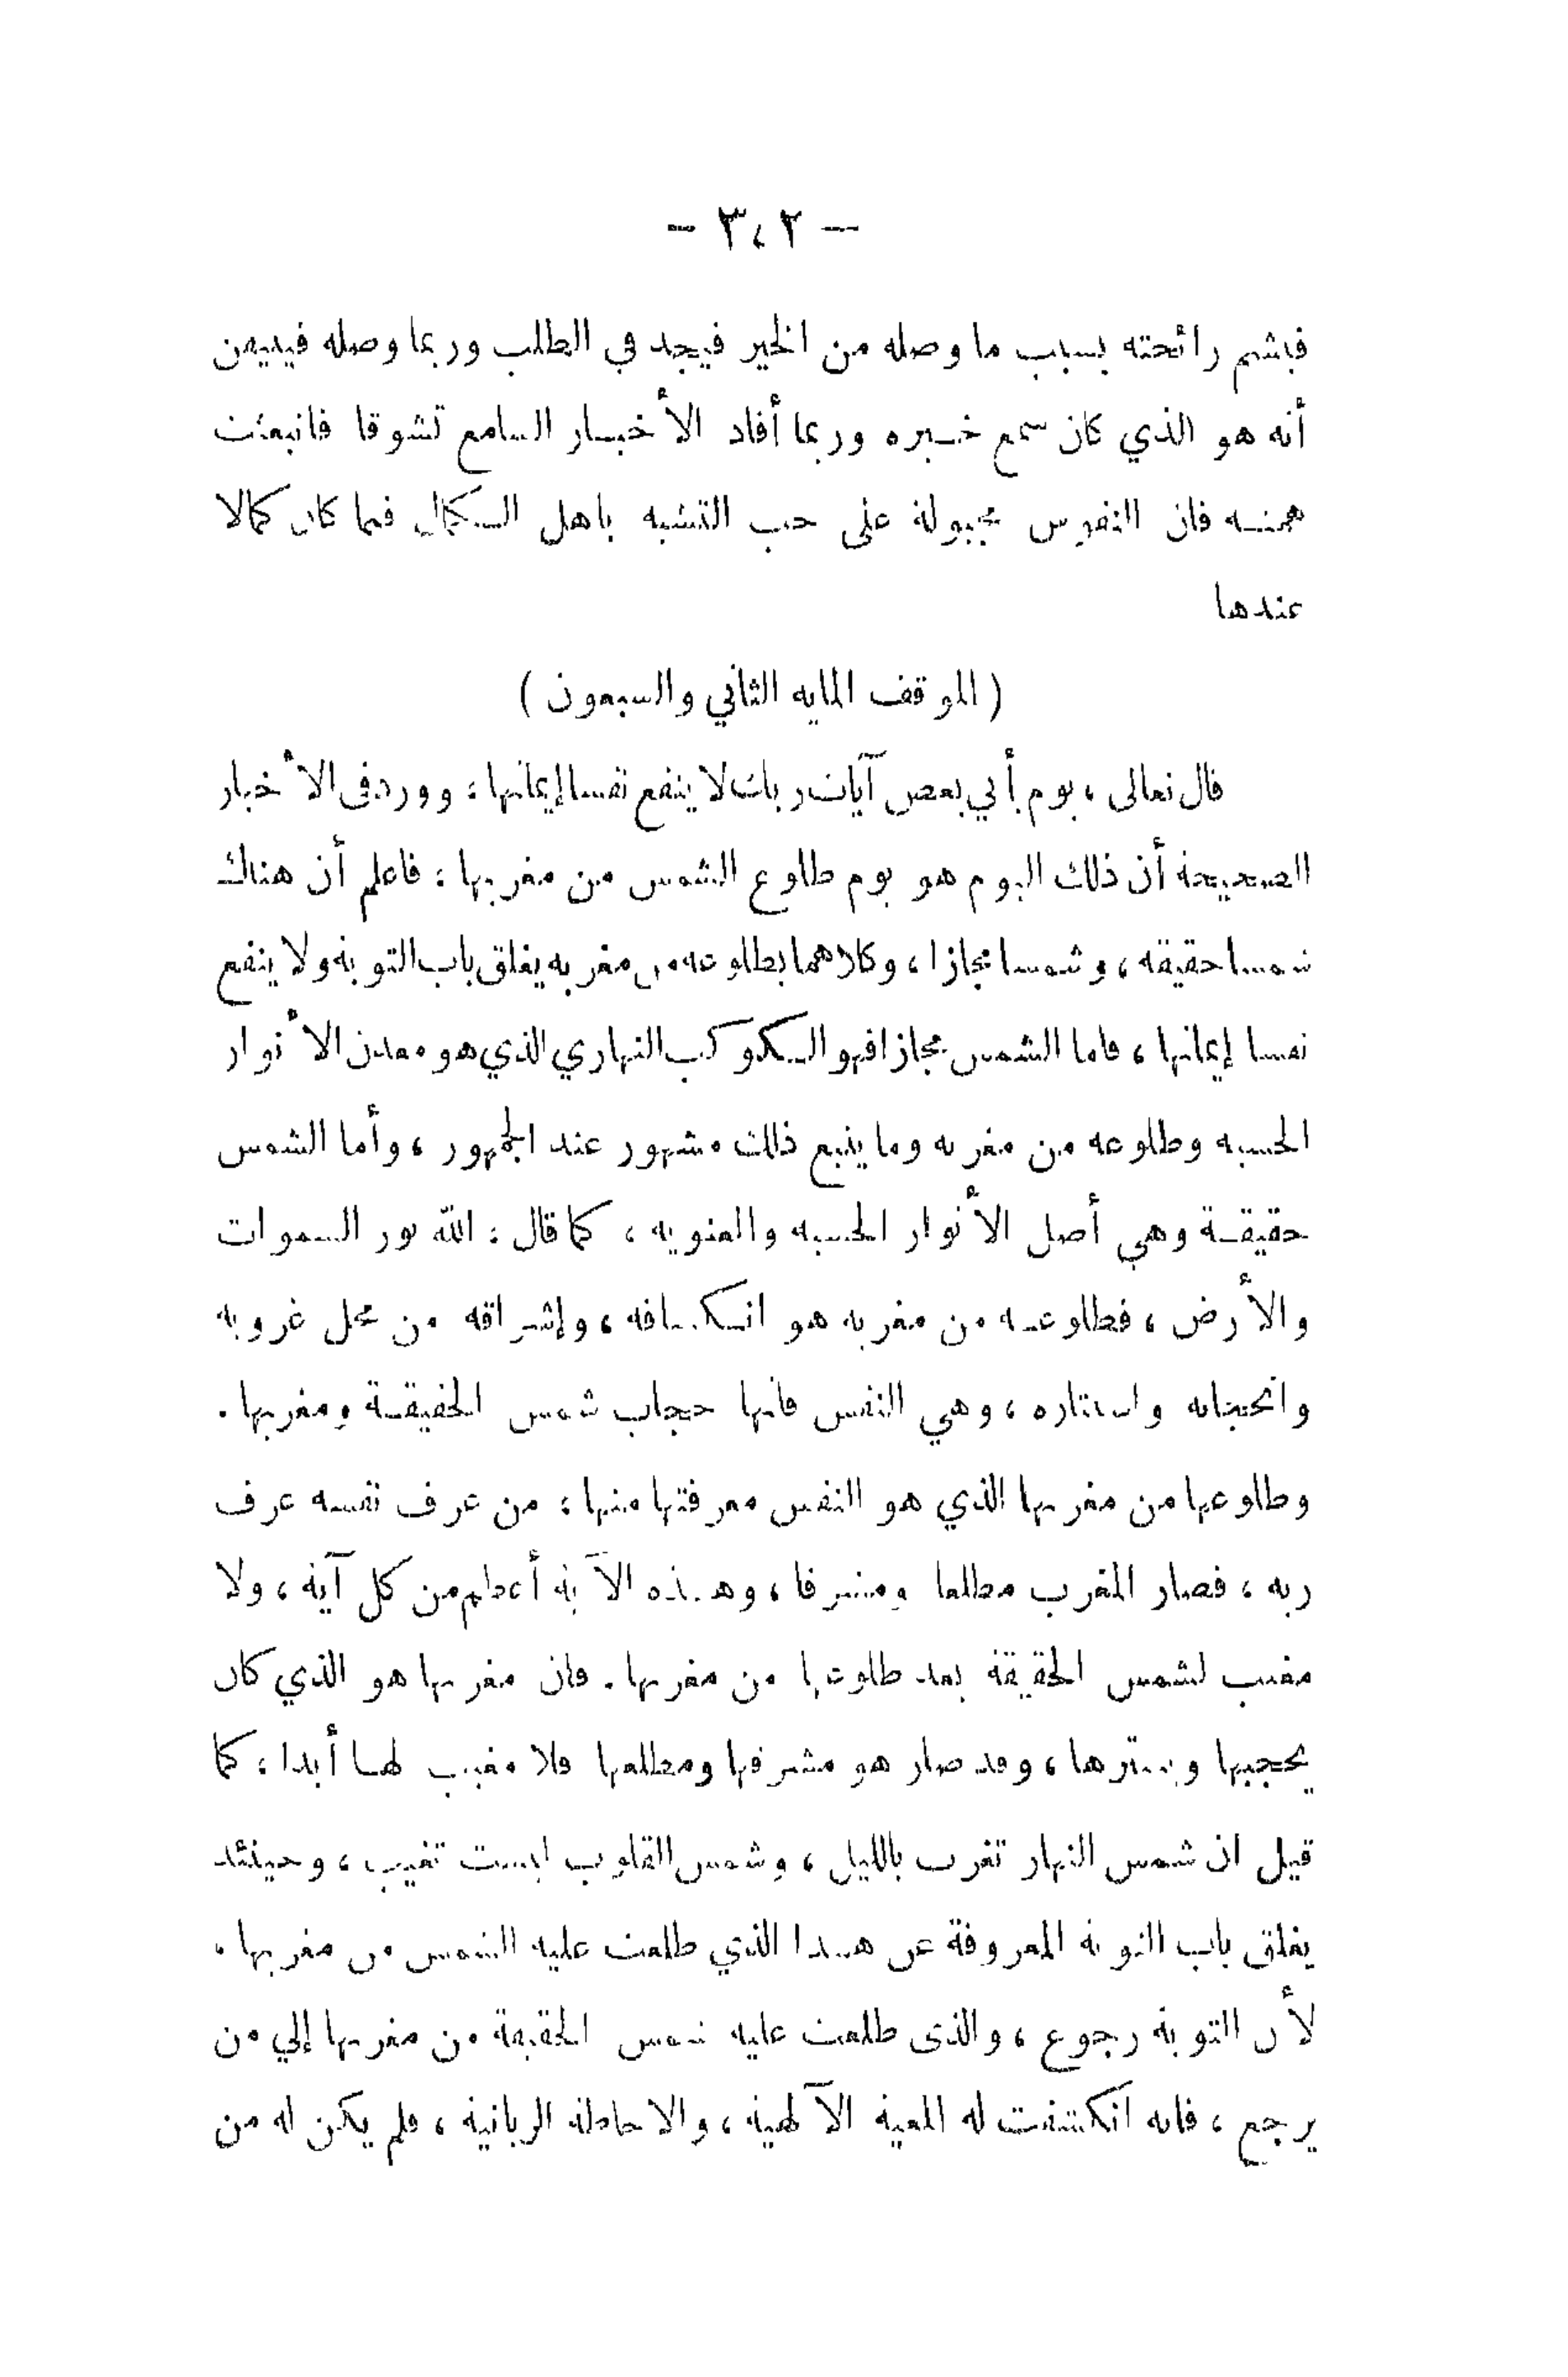 — ٣٤٢ —
فيشم رائحته بسبب ما وصله من الخبر فيجد في الطلب وربما وصله فيتيقن
أنه هو الذي كان سمع خبره وربما أفاد الأخبار السامع تشوقا فانبعثت
همته فان النفوس مجبولة على حب التشبه باهل الكمال فما كان كمالا
عندها
( الموقف المايه الثاني والسبعون )
قال تعالى ، يوم يأتي بعض آيات ربك لا ينفع نفسا إيمانها : وورد في الأخبار
الصحيحة أن ذلك اليوم هو يوم طلوع الشمس من مغربها : فاعلم أن هناك
شمسا حقيقه ، وشمسا مجازا ، وكلاهما بطلوعه من مغربه يغلق باب التوبة ولا ينفع
نفسا إيمانها ، فاما الشمس مجازا فهو الكوكب النهاري الذي هو معدن الأنوار
الحسيه وطلوعه من مغربه وما يتبع ذلك مشهور عند الجمهور ، وأما الشمس
حقيقة وهي أصل الأنوار الحسيه والمعنويه ، كما قال : الله نور السموات
والأرض ، فطلوعه من مغربه هو انكشافه ، وإشراقه من محل غروبه
وانحجابه واستتاره ، وهي النفس فانها حجاب شمس الحقيقة ومغربها .
وطلوعها من مغربها الذي هو النفس معرفتها منها : من عرف نفسه عرف
ربه ، فصار المغرب مطلعا ومشرقا ، وهذه الآية أعظم من كل آية ، ولا
مغيب لشمس الحقيقة بعد طلوعها من مغربها . فان مغربها هو الذي كان
يحجبها ويسترها ، وقد صار هو مشرقها ومطلعها فلا مغيب لها أبدا ، كما
قيل ان شمس النهار تغرب بالليل ، وشمس القلوب ليست تغيب ، وحينئد
يغلق باب التوبة المعروفة عن هذا الذي طلعت عليه الشمس من مغربها .
لأن التوبة رجوع ، والذى طلعت عليه شمس الحقيقة من مغربها إلي من
يرجع ، فانه انكشفت له المعية الآلهية ، والاحاطة الربانية ، فلم يكن له من